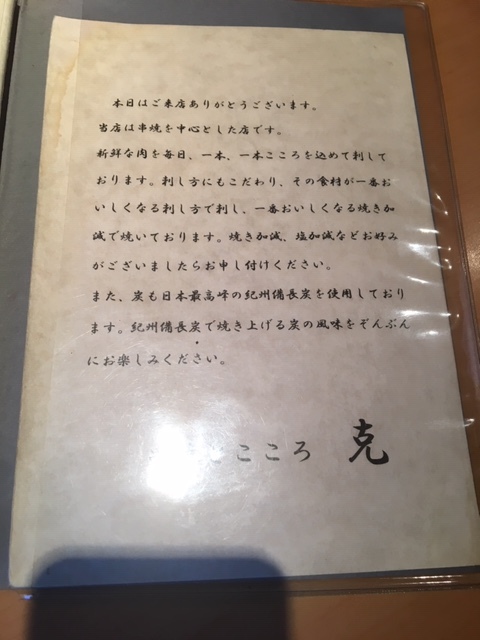 本日はご来店ありがとうございます。
当店は串焼を中心とした店です。
新鮮な肉を毎日、一本、一本こころを込めて刺して
おります。刺し方にもこだわり、その食材が一番お
いしくなる刺し方で刺し、一番おいしくなる焼き加
減で焼いております。焼き加減、塩加減などお好み
がございましたらお申し付けください。
また、炭も日本最高峰の紀州備長炭を使用しており
ます。紀州備長炭で焼き上げる炭の風味をぞんぶん
にお楽しみください。
こころ 克